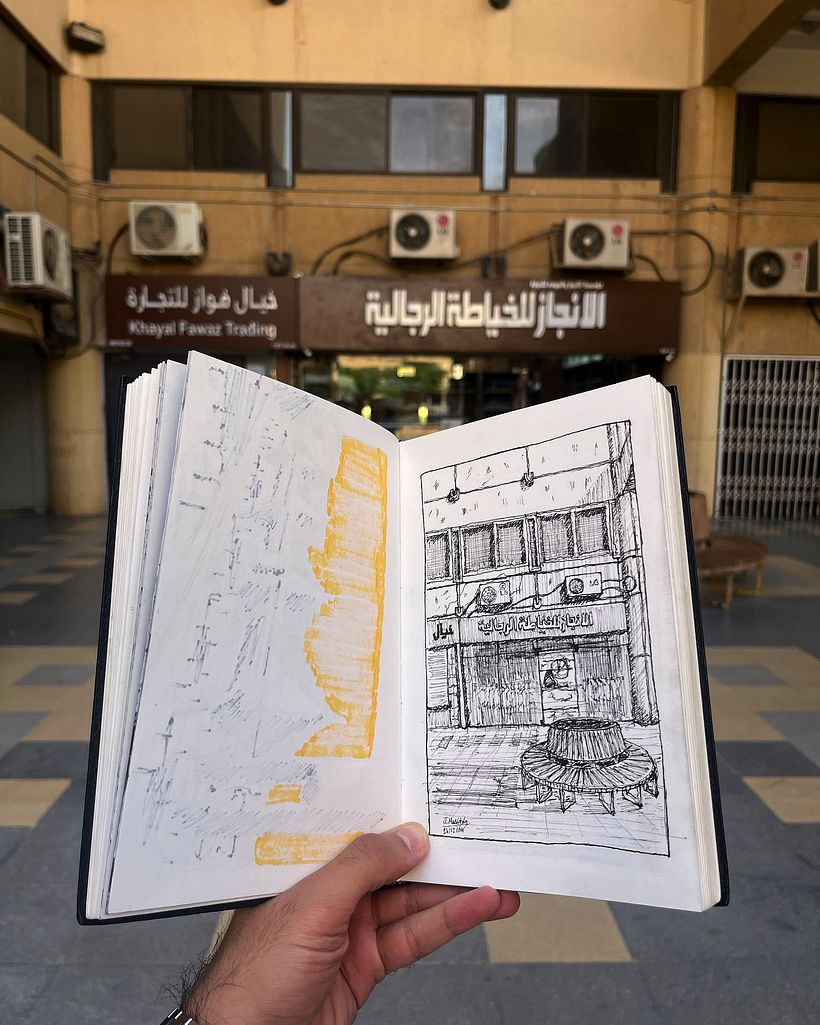 خيال فواز للتجارة
Khayal Fawaz Trading
الانجاز للخياطة الرجالية
LG
LG
خيال
الانجاز للخياطة الرجالية